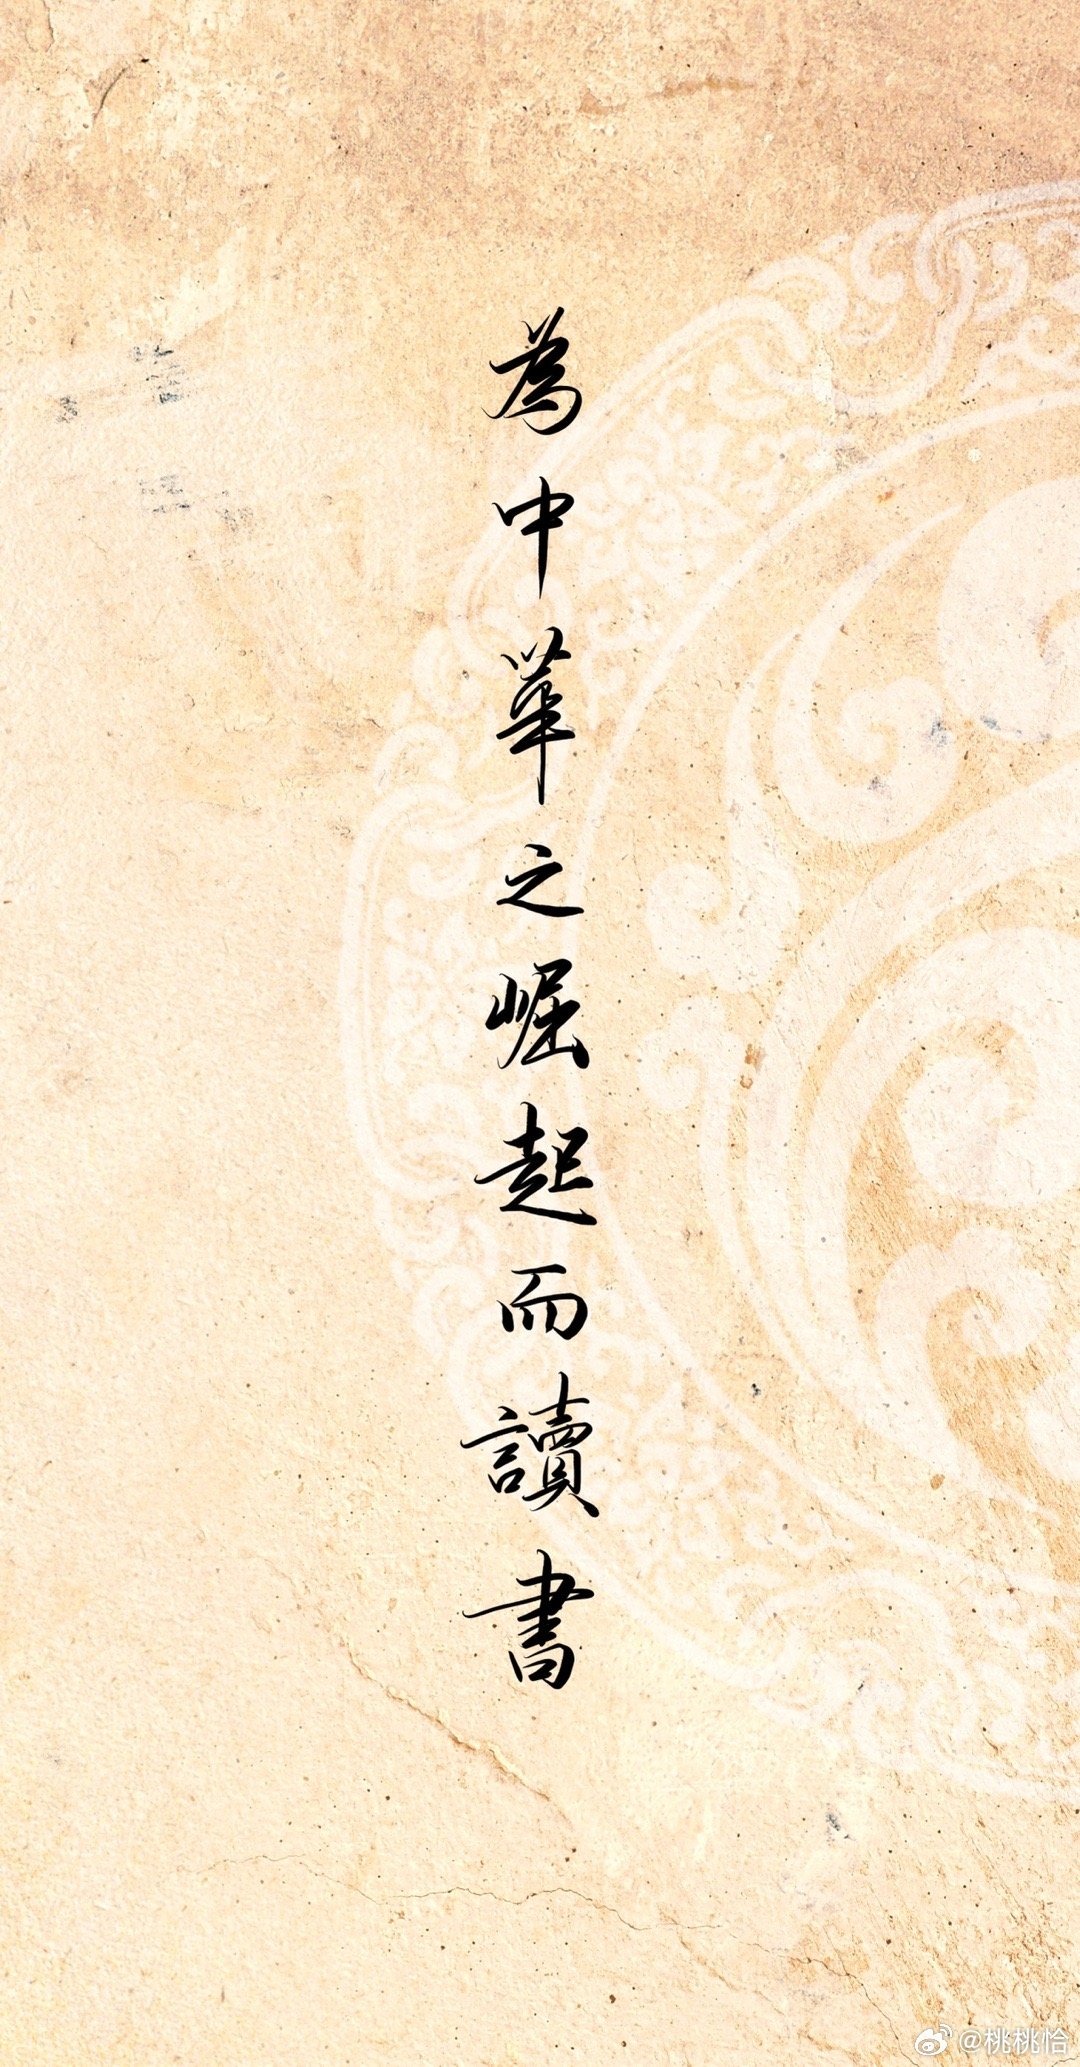 為中華之崛起而讀書
@桃桃恰